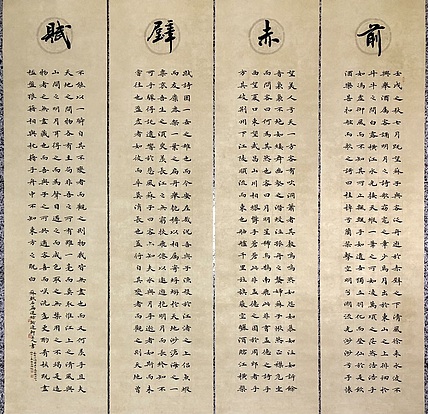 前
壬戌之秋七月既望蘇子與客泛舟遊於赤壁之下清風徐來水波不
興舉酒屬客誦明月之詩歌窈窕之章少焉月出於東山之上徘徊於
斗牛之間白露橫江水光接天縱一葦之所如凌萬頃之茫然浩浩乎
如馮虛御風而不知其所止飄飄乎如遺世獨立羽化而登仙於是飲
酒樂甚扣舷而歌之歌曰桂棹兮蘭槳擊空明兮泝流光渺渺兮予懷
赤
望美人兮天一方客有吹洞簫者其聲嗚嗚然如怨如慕如泣如訴餘
音嫋嫋不絕如縷舞幽壑之潛蛟泣孤舟之嫠婦蘇子愀然正襟危坐
而問客曰何為其然也客曰月明星稀烏鵲南飛此非曹孟德之詩乎
西望夏口東望武昌山川相繆鬱乎蒼蒼此非孟德之困於周郎者乎
方其破荊州下江陵順流而東也舳艫千里旌旗蔽空釃酒臨江橫槊
壁
賦詩固一世之雄也而今安在哉況吾與子漁樵於江渚之上侶魚蝦
而友麋鹿駕一葉之扁舟舉匏樽以相屬寄蜉蝣於天地渺滄海之一
粟哀吾生之須臾羨長江之無窮挾飛仙以遨遊抱明月而長終知不
可乎驟得託遺響於悲風蘇子曰客亦知夫水與月乎逝者如斯而未
嘗往也盈虛者如彼而卒莫消長也蓋將自其變者而觀之則天地曾
賦
不能以一瞬自其不變者而觀之則物與我皆無盡也而又何羨乎且夫
天地之間物各有主苟非吾之所有雖一毫而莫取惟江上之清風與
山間之明月耳得之而為聲目遇之而成色取之無禁用之不竭是造
物者之無盡藏也而吾與子之所共適客喜而笑洗盞更酌肴核既盡
杯盤狼籍相與枕藉乎舟中不知東方之既白